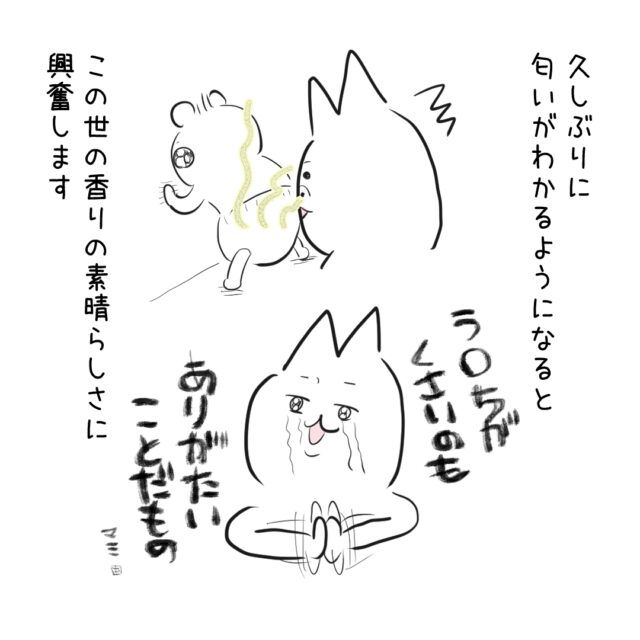 久しぶりに
匂いがわかるようになると
この世の香りの素晴らしさに
興奮します
う〇ちが
くさいのも
ありがたい
ことだもの
マミ